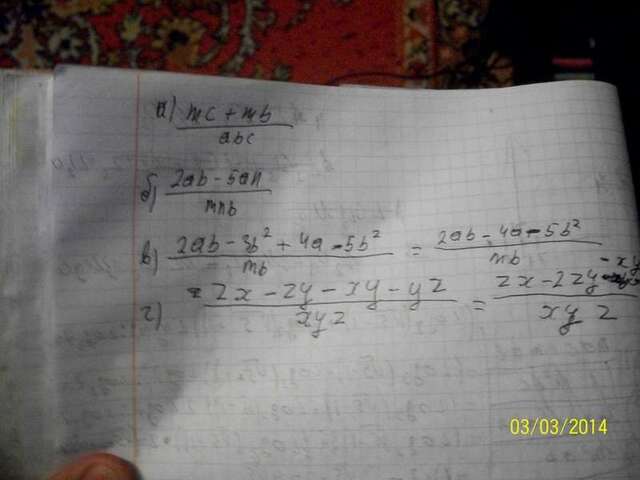 а) mc + mb / abc
б) 2ab - 5an / mnb
в) 2ab - 3b² + 4a - 5b² / mb = 2ab - 4a - 5b² / mb
г) zx - zy - xy - yz / xyz = zx - 2zy - xy / xyz
03/03/2014